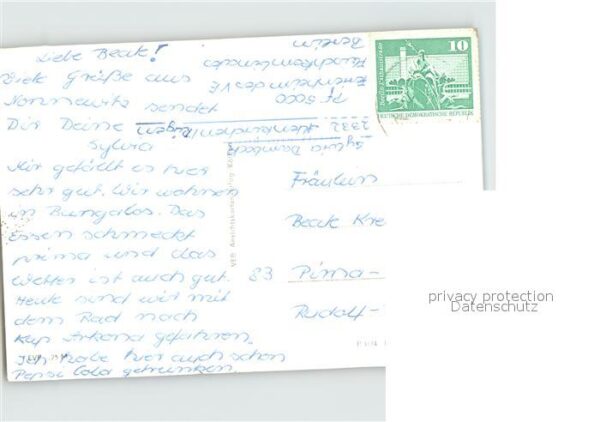 Liebe Beate!
Viele Grüße aus
Nonnevitz sendet
Dir Deine
Sylvia
Mir gefällt es hier
sehr gut. Wir wohnen
in Bungalos. Das
Essen schmeckt
prima und das
Wetter ist auch gut.
Heute sind wir mit
dem Rad nach
Kap Arkona gefahren.
Ich habe hier auch schon
Pepsi Cola getrunken.
Sylvia
2332 Altenkirchen/Rügen
PF 5000
Berlin
10
DEUTSCHE DEMOKRATISCHE REPUBLIK
Fräulein
Beate Kre
83 Pirna-
Rudolf-
privacy protection
Datenschutz